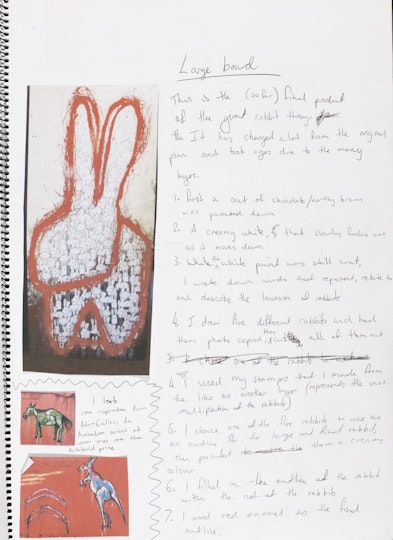 Large board
This is the (so far) final product
of the giant rabbit thing.
It has changed a lot from the original
plan and took ages due to the many
layers.
1. First a coat of chocolate/earthy brown
was painted down
2. A creamy white, that slowly fades out
as it moves down.
3. While the white paint was still wet,
I wrote down words that represent, relate to
and describe the invasion of rabbits
4. I drew five different rabbits and had
them photo copied, then cut all of them out
4. I used my stamps that I made from
the lino as another layer (represents the vast
multiplication of the rabbits)
5. I choose one of the five rabbits to use as
an outline for the large and final rabbit,
then painted them a creamy
colour.
6. I filled in the outline of the rabbit
with the rest of the rabbits
7. I used red enamel as the final
outline.
I took
some inspiration from
Adam Cullen, an
Australian artist who
won the
Archibald prize